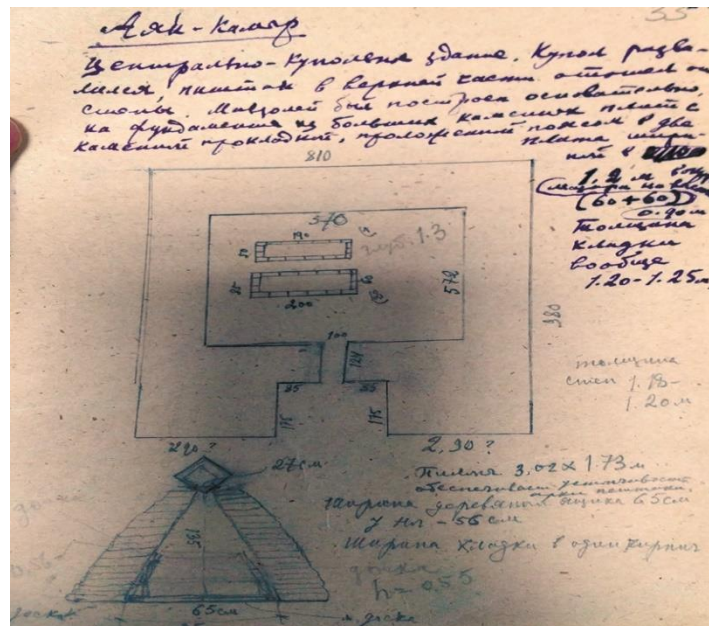 33
Аяк-Камыр
Центрально-купольное здание. Купол разва-
лился, пиштак в верхней части отошел от
стены. Мавзолей был построен основательно,
на фундаменте из больших каменных плит с
каменной прокладкой, проложенной поясом в два
плита шири-
ной в
1,2 м
(60+60)
0.20м
Толщина
кладки
вообще
1.20-1.25м
810
570
190
глуб. 1.3
200
572
980
100
124
85
85
175
175
290?
2,90?
толщина
стен 1.18-
1.20м
27см
Пилон 3,02 x 1.73 м
обеспечивали устойчивость
арки пештака.
Ширина деревянного ящика 65см
у ног - 56см
Ширина кладки в один кирпич
135
доска
h=0,55
65см
доска